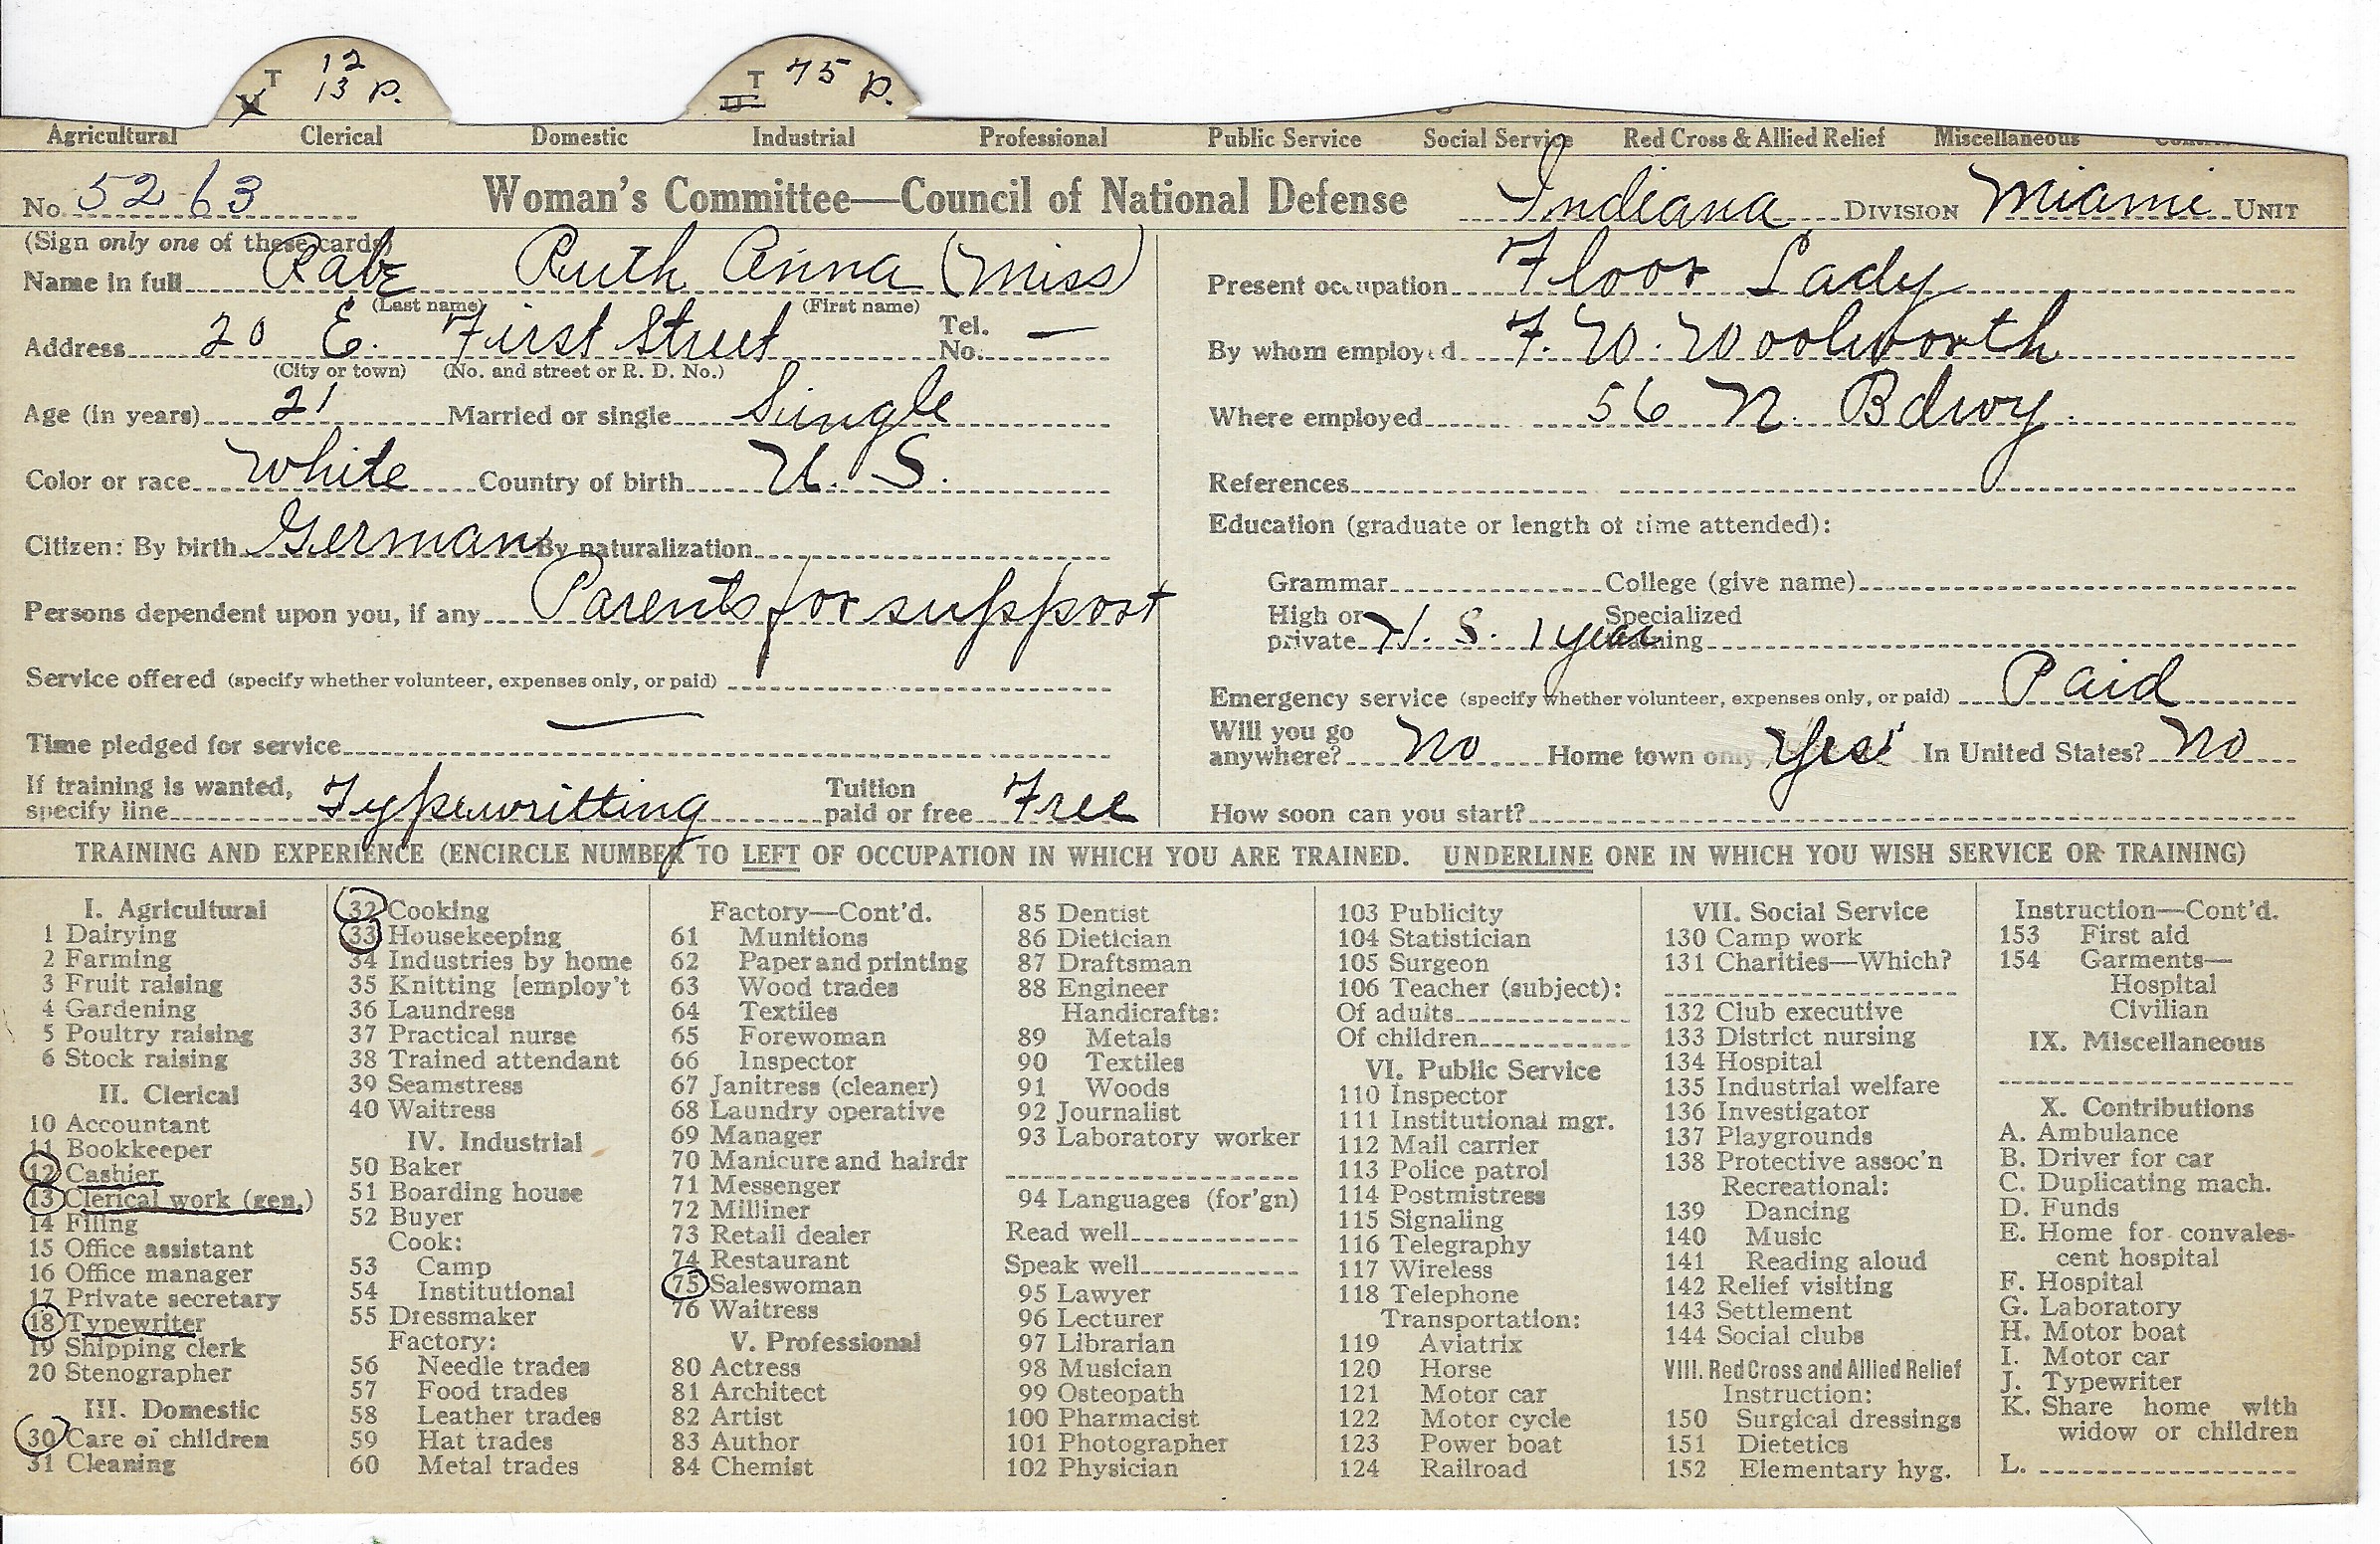 T 12
U 13 P.
T 75 P.
U
Agricultural Clerical Domestic Industrial Professional Public Service Social Service Red Cross & Allied Relief Miscellaneous
No. 5263 Woman's Committee—Council of National Defense Indiana DIVISION Miami UNIT
(Sign only one of these cards)
Name in full Rabe Ruth Anna (Miss)
(Last name) (First name)
Address 20 E. First Street Tel. No. —
(City or town) (No. and street or R. D. No.)
Age (in years) 21 Married or single Single
Color or race White Country of birth U. S.
Citizen: By birth German By naturalization
Persons dependent upon you, if any Parents for support
Service offered (specify whether volunteer, expenses only, or paid)
Time pledged for service —
If training is wanted, specify line Typewritting Tuition paid or free Free
Present occupation Floor Lady
By whom employed F. W. Woolworth
Where employed 56 N. Bdwy.
References
Education (graduate or length of time attended):
Grammar College (give name)
High or private H. S. 1 year Specialized training
Emergency service (specify whether volunteer, expenses only, or paid) Paid
Will you go anywhere? No Home town only Yes In United States? No
How soon can you start?
TRAINING AND EXPERIENCE (ENCIRCLE NUMBER TO LEFT OF OCCUPATION IN WHICH YOU ARE TRAINED. UNDERLINE ONE IN WHICH YOU WISH SERVICE OR TRAINING)
I. Agricultural
1 Dairying
2 Farming
3 Fruit raising
4 Gardening
5 Poultry raising
6 Stock raising
II. Clerical
10 Accountant
11 Bookkeeper
12 Cashier
13 Clerical work (gen.)
14 Filing
15 Office assistant
16 Office manager
17 Private secretary
18 Typewriter
19 Shipping clerk
20 Stenographer
III. Domestic
30 Care of children
31 Cleaning
32 Cooking
33 Housekeeping
34 Industries by home
35 Knitting [employ't
36 Laundress
37 Practical nurse
38 Trained attendant
39 Seamstress
40 Waitress
IV. Industrial
50 Baker
51 Boarding house
52 Buyer
Cook:
53 Camp
54 Institutional
55 Dressmaker
Factory:
56 Needle trades
57 Food trades
58 Leather trades
59 Hat trades
60 Metal trades
Factory—Cont'd.
61 Munitions
62 Paper and printing
63 Wood trades
64 Textiles
65 Forewoman
66 Inspector
67 Janitress (cleaner)
68 Laundry operative
69 Manager
70 Manicure and hairdr
71 Messenger
72 Milliner
73 Retail dealer
74 Restaurant
75 Saleswoman
76 Waitress
V. Professional
80 Actress
81 Architect
82 Artist
83 Author
84 Chemist
85 Dentist
86 Dietician
87 Draftsman
88 Engineer
Handicrafts:
89 Metals
90 Textiles
91 Woods
92 Journalist
93 Laboratory worker
94 Languages (for'gn)
Read well
Speak well
95 Lawyer
96 Lecturer
97 Librarian
98 Musician
99 Osteopath
100 Pharmacist
101 Photographer
102 Physician
103 Publicity
104 Statistician
105 Surgeon
106 Teacher (subject):
Of adults
Of children
VI. Public Service
110 Inspector
111 Institutional mgr.
112 Mail carrier
113 Police patrol
114 Postmistress
115 Signaling
116 Telegraphy
117 Wireless
118 Telephone
Transportation:
119 Aviatrix
120 Horse
121 Motor car
122 Motor cycle
123 Power boat
124 Railroad
VII. Social Service
130 Camp work
131 Charities—Which?
132 Club executive
133 District nursing
134 Hospital
135 Industrial welfare
136 Investigator
137 Playgrounds
138 Protective assoc'n
Recreational:
139 Dancing
140 Music
141 Reading aloud
142 Relief visiting
143 Settlement
144 Social clubs
VIII. Red Cross and Allied Relief
Instruction:
150 Surgical dressings
151 Dietetics
152 Elementary hyg.
Instruction—Cont'd.
153 First aid
154 Garments—
Hospital
Civilian
IX. Miscellaneous
X. Contributions
A. Ambulance
B. Driver for car
C. Duplicating mach.
D. Funds
E. Home for convales-
cent hospital
F. Hospital
G. Laboratory
H. Motor boat
I. Motor car
J. Typewriter
K. Share home with
widow or children
L.